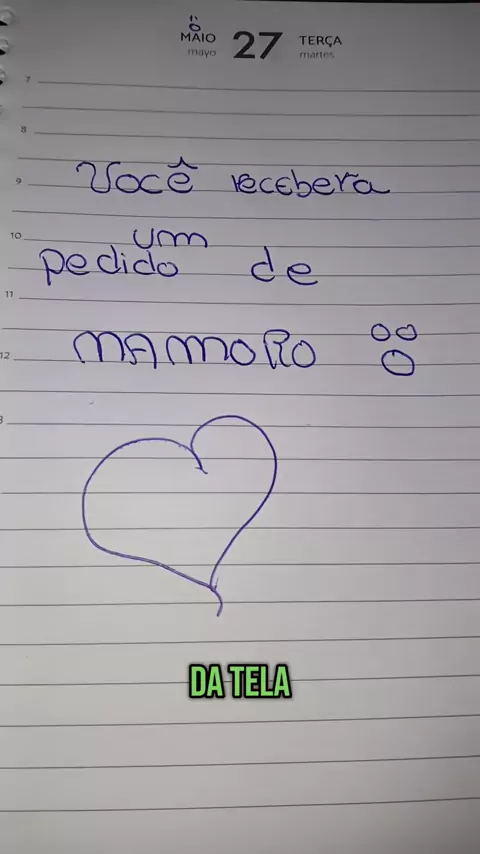 MAIO
mayo
27
TERÇA
martes
7
8
9
Você recebera
10
um
pedido de
11
MAMORO
12
DA TELA